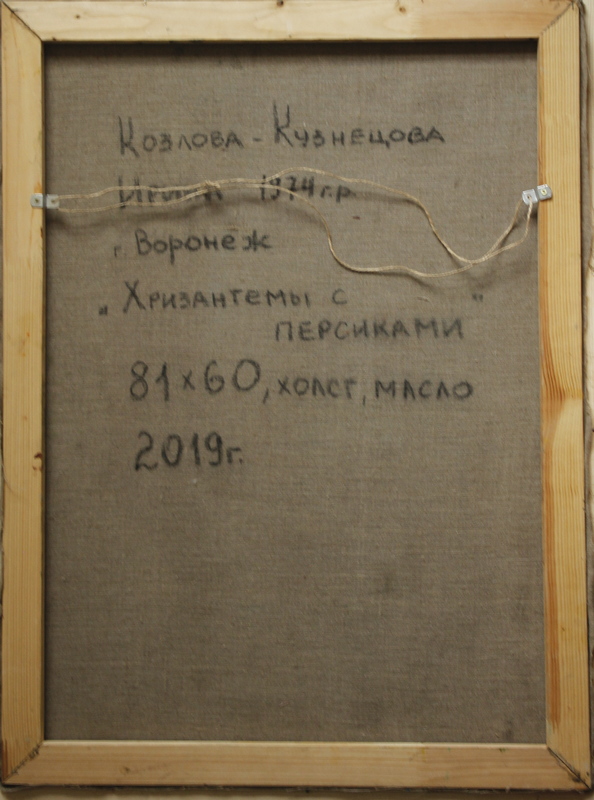 Козлова - Кузнецова
Ирина 1974 г.р.
г. Воронеж
„Хризантемы с
персиками"
81 х 60, холст, масло
2019г.